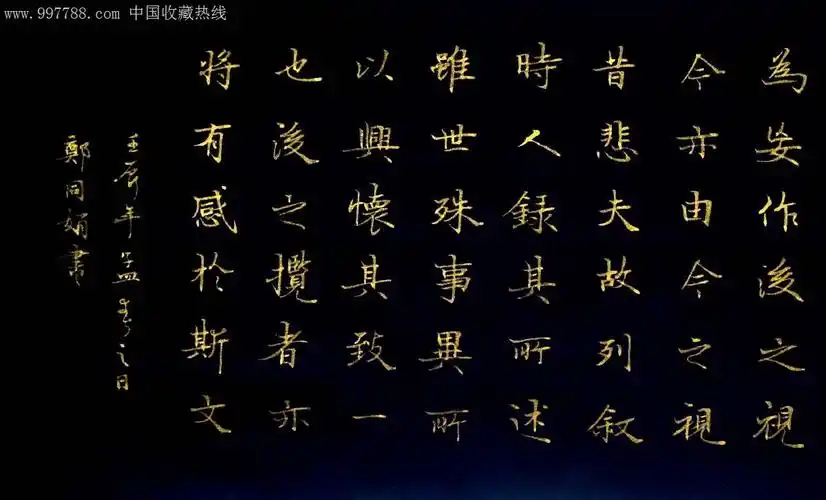 www.997788.com 中国收藏热线
為妄作後之視
今亦由今之視
昔悲夫故列叙
時人錄其所述
雖世殊事異所
以興懷其致一
也後之攬者亦
將有感於斯文
壬辰年孟春之日
鄭同娟書